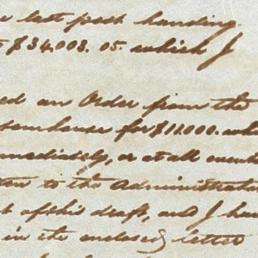 e last post handing
$34.003.05. which I
ed an Order from the
omhouse for $11000. whi
mediately, or at all event
to the Administrat
t of this draft, and I ha
in the enclosed letter